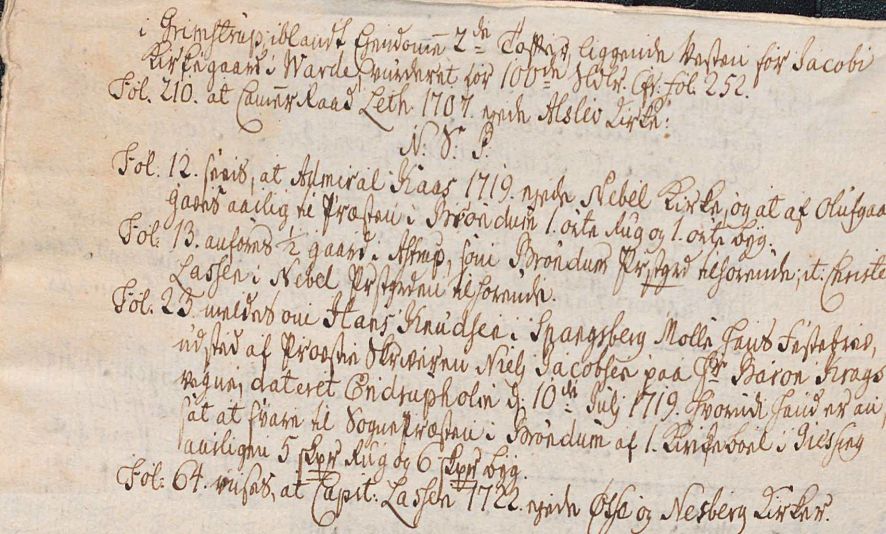 i Grimstrup, iblandt Eendomē 2de Tofter, liggende Vesten for Jacobi
Kirkegaard i Warde, vurderet for 100de Sldlr. Cfr. Fol. 252.
Fol. 210. at Camēr Raad Leth 1707. ejede Alslev Kirke.
N. S. P.
Fol. 12. sees, at Admiral Kaas 1719. ejede Nebel Kirke, og at af Olufgaa
gaves aarlig til Præsten i Brøndum 1. ørte Rug og 1. ørte byg.
Fol. 13. anføres 1/2 gaard i Astrup, som Brøndum Prstgrd tilhørende, it. Christe
Lassen i Nebel Prstgrden tilhørende.
Fol. 25. meldes om Hans Knudsen i Spangsberg Mølle hans Festebrev,
udsted af Provstie Skriveren Niels Jacobsen paa Hr Baron Krags
vegne, dateret Endrupholm d. 10de Julj 1719. hvorude hand er an,
sat at svare til SognePræsten i Brøndum af 1. Kirkeboel i Giessing
aarligen 5 skpr Rug og 6 skpr byg.
Fol. 64. viises, at Capit. Lassen 1722. ejede Øsse og Nesberg Kirker.